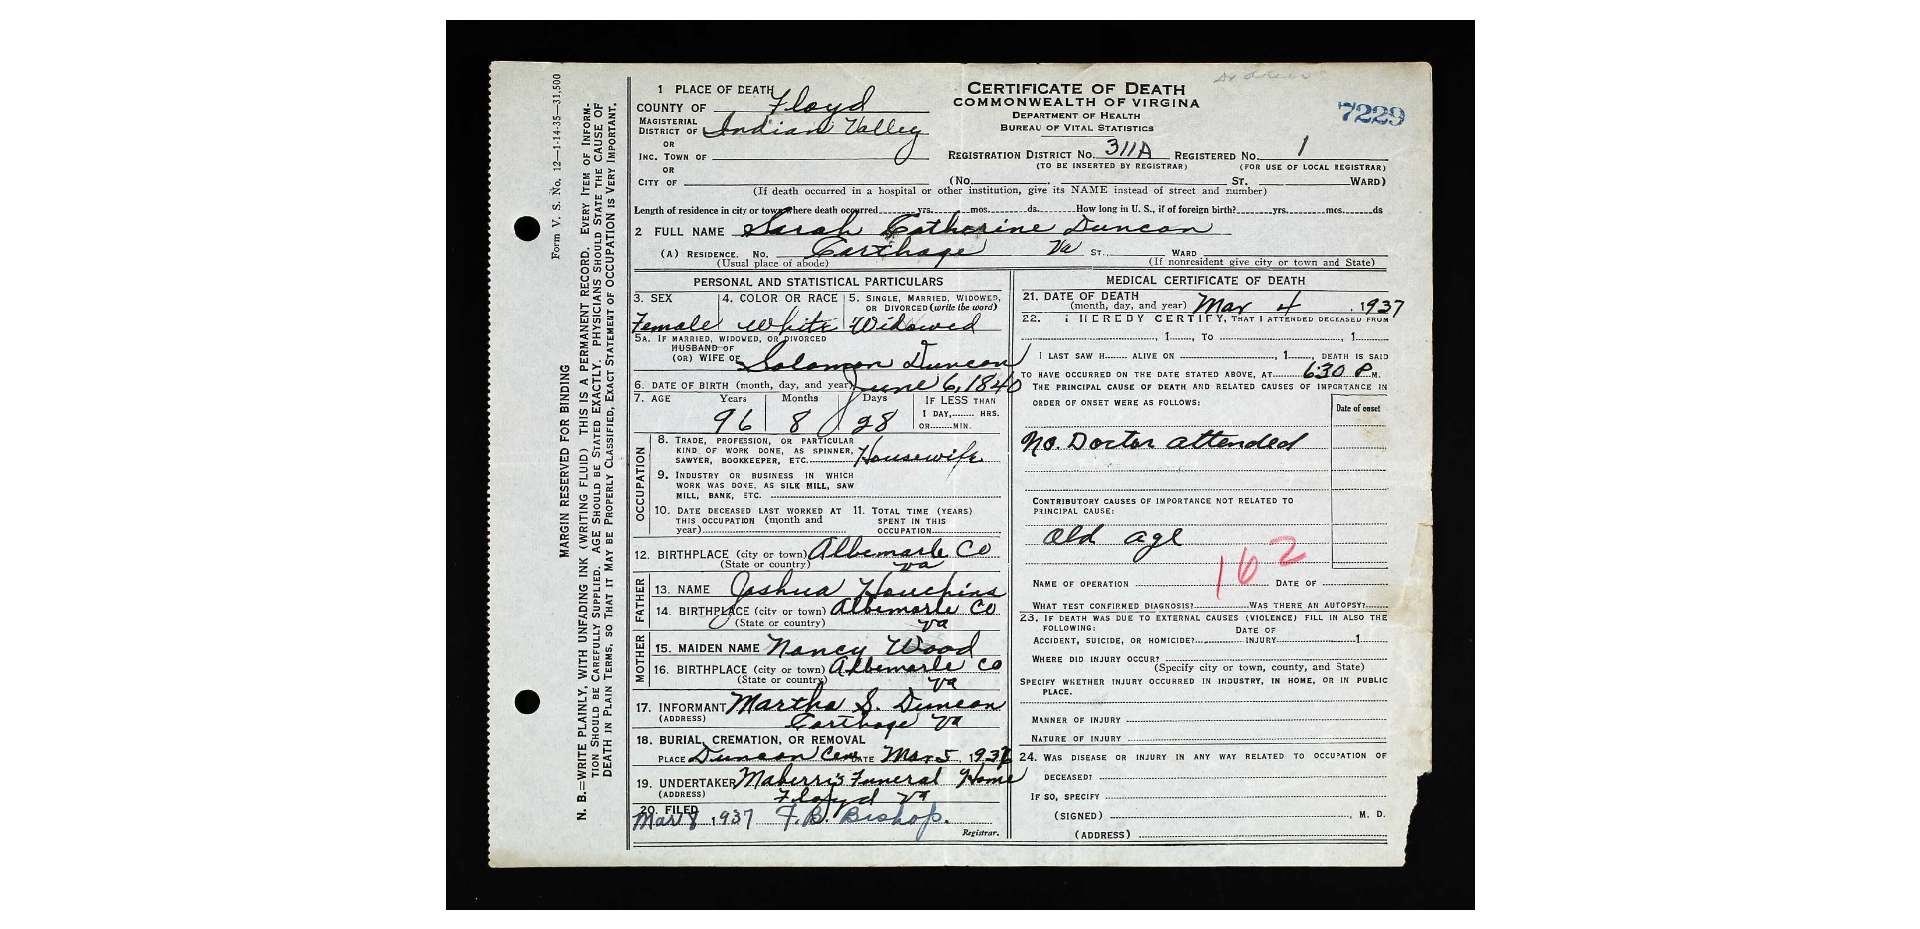 Form V. S. No. 12—1-14-35—31,500
MARGIN RESERVED FOR BINDING
N. B.—WRITE PLAINLY, WITH UNFADING INK (WRITING FLUID) THIS IS A PERMANENT RECORD. EVERY ITEM OF INFORM-
TION SHOULD BE CAREFULLY SUPPLIED. AGE SHOULD BE STATED EXACTLY. PHYSICIANS SHOULD STATE THE CAUSE OF
DEATH IN PLAIN TERMS, SO THAT IT MAY BE PROPERLY CLASSIFIED. EXACT STATEMENT OF OCCUPATION IS VERY IMPORTANT.
CERTIFICATE OF DEATH
COMMONWEALTH OF VIRGINA
DEPARTMENT OF HEALTH
BUREAU OF VITAL STATISTICS
7229
1 PLACE OF DEATH
COUNTY OF Floyd
MAGISTERIAL
DISTRICT OF Indian Valley
OR
INC. TOWN OF
OR
CITY OF
REGISTRATION DISTRICT NO. 311A REGISTERED NO. 1
(TO BE INSERTED BY REGISTRAR) (FOR USE OF LOCAL REGISTRAR)
(No. ST. WARD)
(If death occurred in a hospital or other institution, give its NAME instead of street and number)
Length of residence in city or town where death occurred yrs. mos. ds. How long in U. S., if of foreign birth? yrs. mos. ds
2 FULL NAME Sarah Catherine Duncan
(A) RESIDENCE. NO. Carthage Va ST., WARD
(Usual place of abode) (If nonresident give city or town and State)
PERSONAL AND STATISTICAL PARTICULARS
3. SEX 4. COLOR OR RACE 5. SINGLE, MARRIED, WIDOWED,
OR DIVORCED (write the word)
Female White Widowed
5A. IF MARRIED, WIDOWED, OR DIVORCED
HUSBAND OF
(OR) WIFE OF Solomon Duncan
6. DATE OF BIRTH (month, day, and year) June 6, 1840
7. AGE Years Months Days IF LESS THAN
1 DAY, HRS.
96 8 28 OR MIN.
OCCUPATION
8. TRADE, PROFESSION, OR PARTICULAR
KIND OF WORK DONE, AS SPINNER,
SAWYER, BOOKKEEPER, ETC. Housewife
9. INDUSTRY OR BUSINESS IN WHICH
WORK WAS DONE, AS SILK MILL, SAW
MILL, BANK, ETC.
10. DATE DECEASED LAST WORKED AT 11. TOTAL TIME (YEARS)
THIS OCCUPATION (month and SPENT IN THIS
year) OCCUPATION
12. BIRTHPLACE (city or town) Albemarle Co
(State or country) Va
FATHER
13. NAME Joshua Houchins
14. BIRTHPLACE (city or town) Albemarle Co
(State or country) Va
MOTHER
15. MAIDEN NAME Nancy Wood
16. BIRTHPLACE (city or town) Albemarle Co
(State or country) Va
17. INFORMANT Martha S. Duncan
(ADDRESS) Carthage Va
18. BURIAL, CREMATION, OR REMOVAL
PLACE Duncan Cem DATE Mar 5, 1937
19. UNDERTAKER Maberry's Funeral Home
(ADDRESS) Floyd Va
20. FILED
Mar 8, 1937 F.B. Bishop.
Registrar.
MEDICAL CERTIFICATE OF DEATH
21. DATE OF DEATH
(month, day, and year) Mar 4, 1937
22. I HEREDY CERTIFY, THAT I ATTENDED DECEASED FROM
, 1 , TO , 1
I LAST SAW H ALIVE ON , 1 , DEATH IS SAID
TO HAVE OCCURRED ON THE DATE STATED ABOVE, AT 6:30 P M.
THE PRINCIPAL CAUSE OF DEATH AND RELATED CAUSES OF IMPORTANCE IN
ORDER OF ONSET WERE AS FOLLOWS: Date of onset
No. Doctor attended
CONTRIBUTORY CAUSES OF IMPORTANCE NOT RELATED TO
PRINCIPAL CAUSE:
Old age
162
NAME OF OPERATION DATE OF
WHAT TEST CONFIRMED DIAGNOSIS? WAS THERE AN AUTOPSY?
23. IF DEATH WAS DUE TO EXTERNAL CAUSES (VIOLENCE) FILL IN ALSO THE
FOLLOWING: DATE OF
ACCIDENT, SUICIDE, OR HOMICIDE? INJURY 1
WHERE DID INJURY OCCUR?
(Specify city or town, county, and State)
SPECIFY WHETHER INJURY OCCURRED IN INDUSTRY, IN HOME, OR IN PUBLIC
PLACE.
MANNER OF INJURY
NATURE OF INJURY
24. WAS DISEASE OR INJURY IN ANY WAY RELATED TO OCCUPATION OF
DECEASED?
IF SO, SPECIFY
(SIGNED) , M. D.
(ADDRESS)